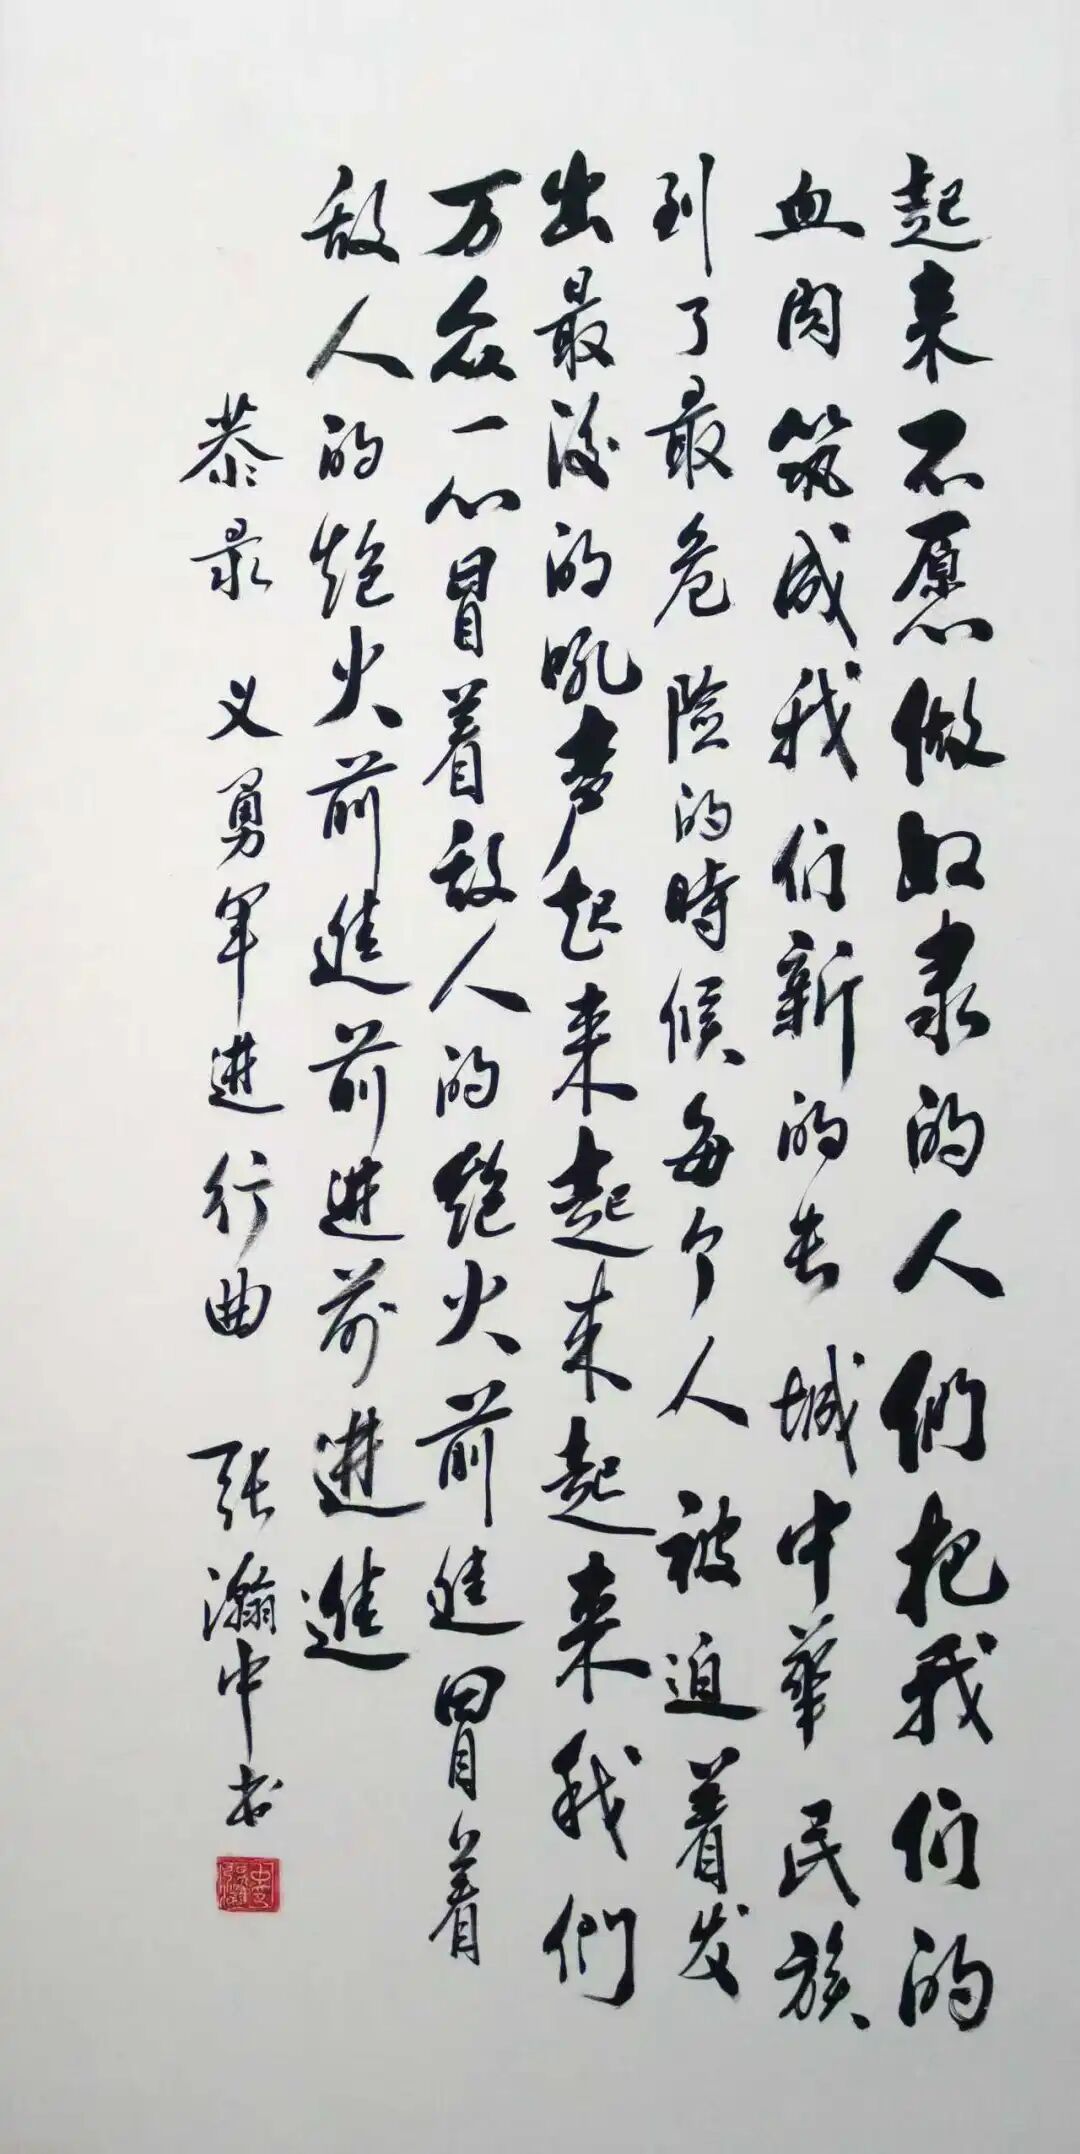 起来不愿做奴隶的人们把我们的
血肉筑成我们新的长城中华民族
到了最危险的時候每个人被迫着发
出最后的吼声起来起来起来我們
万众一心冒着敌人的炮火前进冒着
敌人的炮火前進前进前进進
恭录 义勇军进行曲 张瀚中书